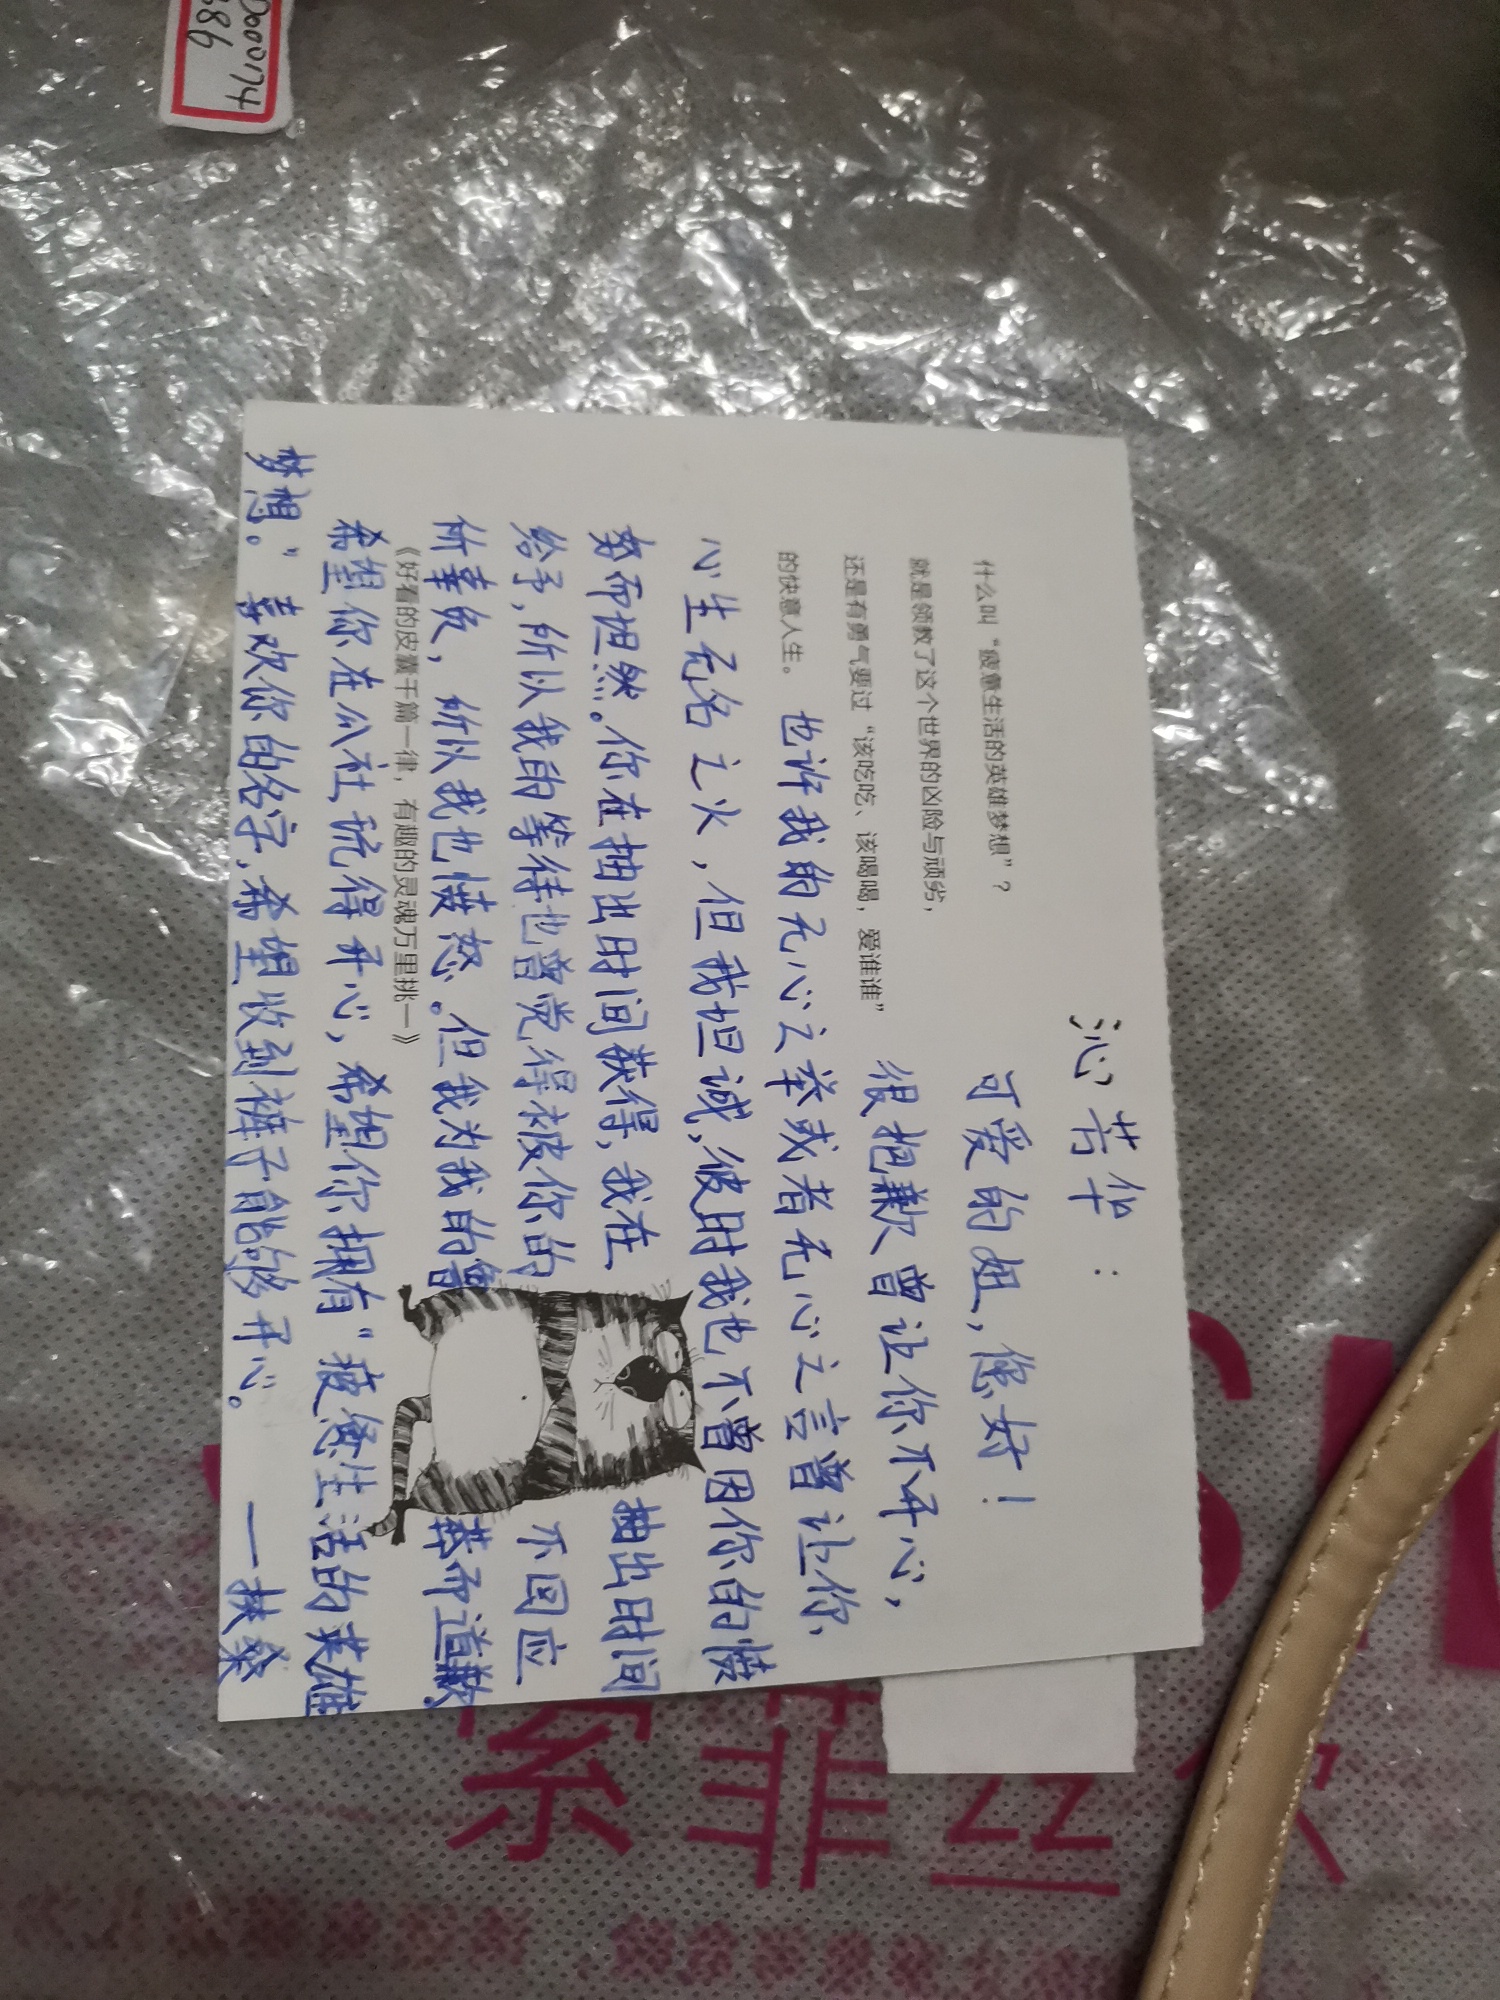 沁芳华:
可爱的姐,您好!
什么叫“疲惫生活的英雄梦想”?
就是领教了这个世界的凶险与顽劣,
很抱歉曾让你不开心,
还是有勇气要过“该吃吃、该喝喝,爱谁谁”
的快意人生。
也许我的无心之举或者无心之言曾让你
心生无名之火,但我坦诚,彼时我也不曾因你的愤
怒而坦然。你在抽出时间获得,我在抽出时间
给予,所以我的等待也曾觉得被你的不回应
所辜负,所以我也愤怒。但我为我的鲁莽而道歉.
《好看的皮囊千篇一律,有趣的灵魂万里挑一》
希望你在瓜社玩得开心,希望你拥有“疲惫生活的英雄
梦想。”喜欢你的名字,希望收到裤子能够开心。
——扶桑
0000174
886
索菲